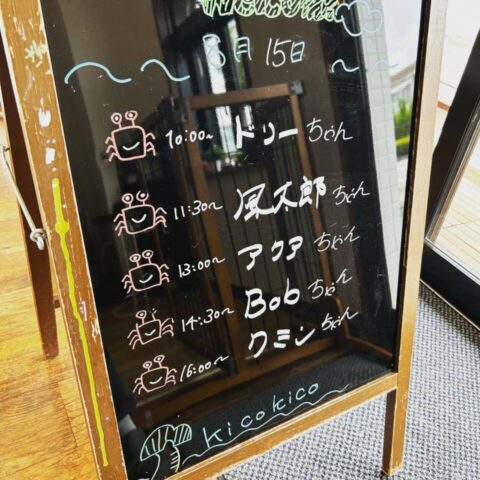 8月 15日
10:00~ ドリーちゃん
11:30~ 風太郎ちゃん
13:00~ アクアちゃん
14:30~ Bobちゃん
16:00~ クミンちゃん
kicokico